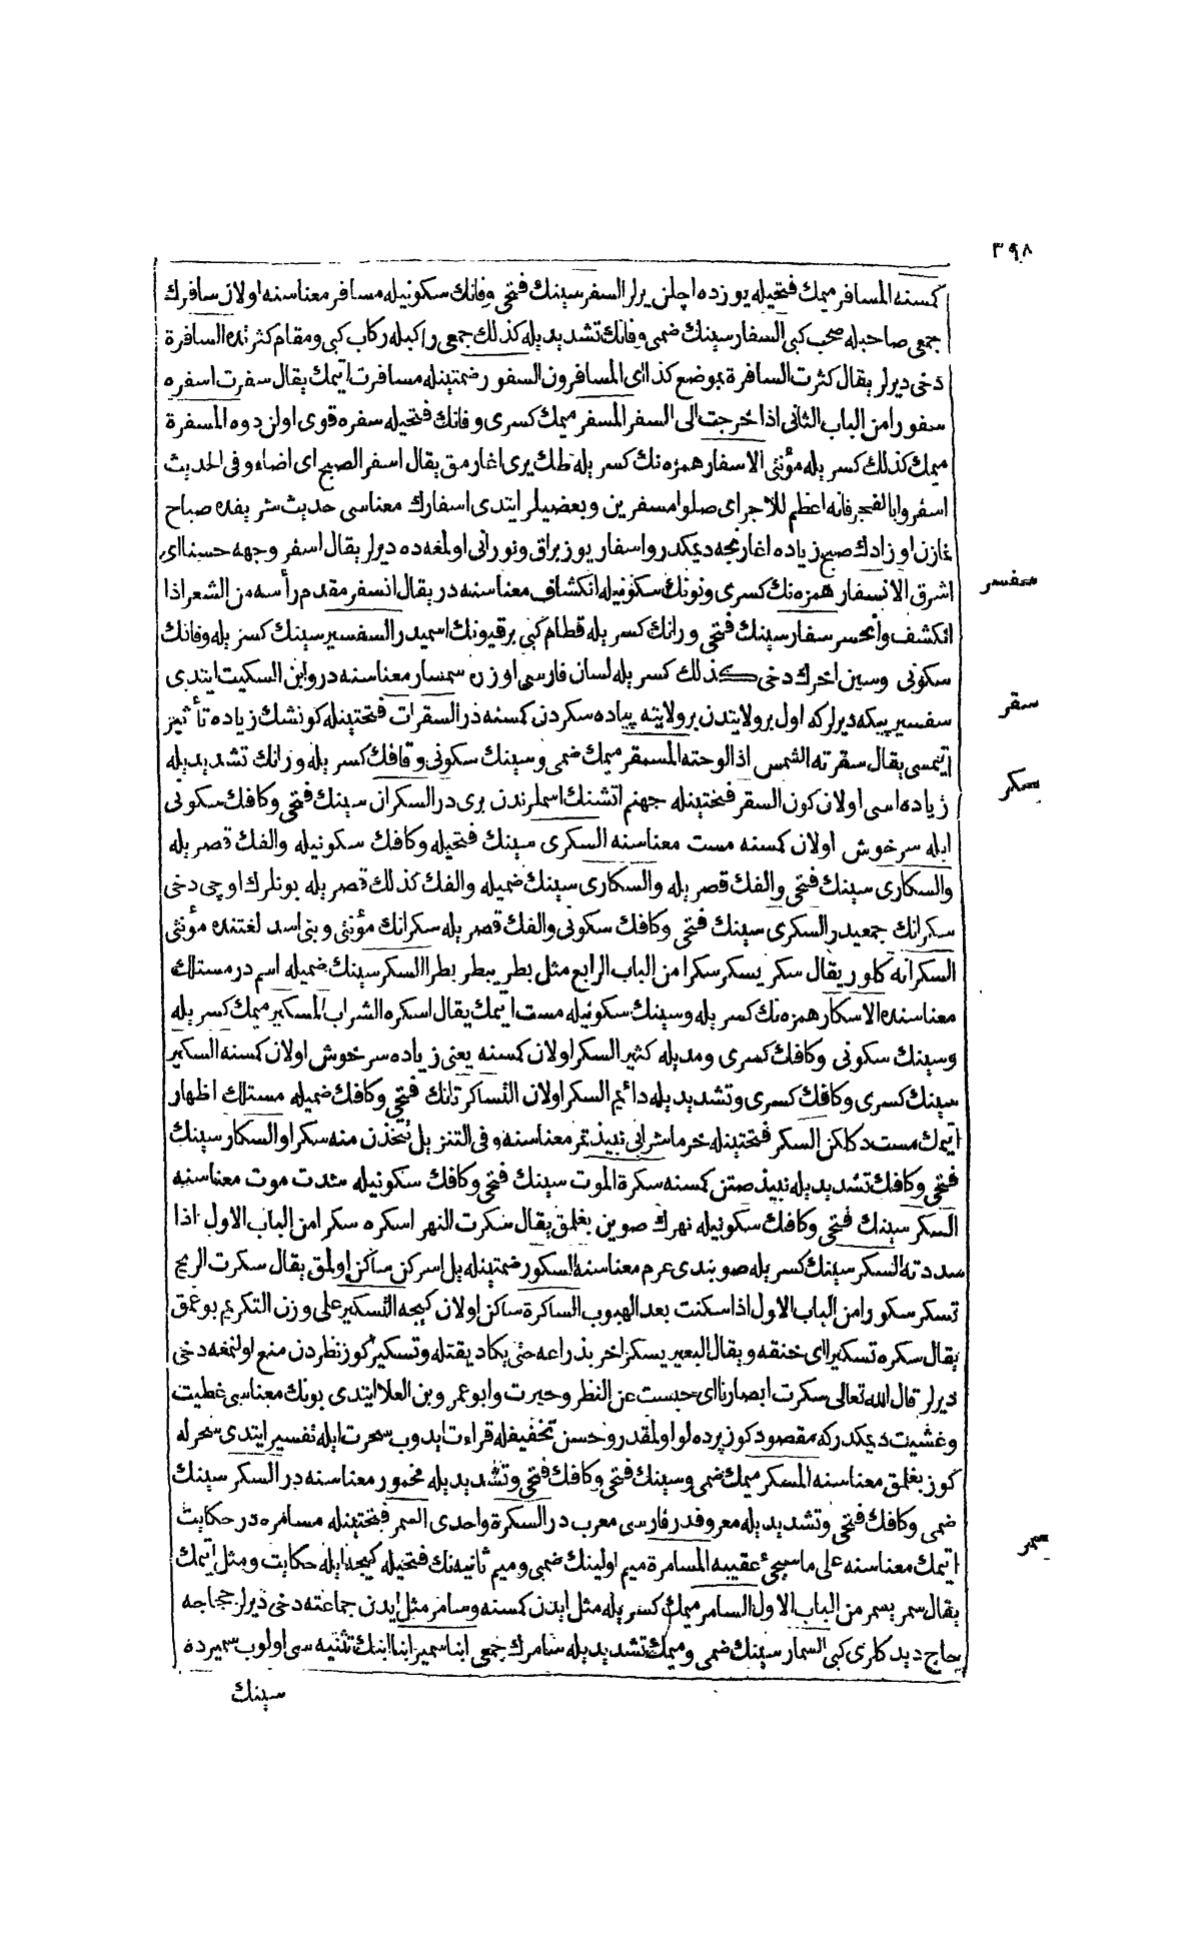 ٣٩٨
كسنه المسافر ميمك فتحيله يوزده اچلن يرلر السفر سينك فتحى وفانك سكونيله مسافر معناسنه اولان سافرك
جمعى صاحبله صحب كبى السفار سينك ضمى وفانك تشديديله كذلك جمعى راكبله ركاب كبى ومقام كثرتده السافرة
دخى ديرلر يقال كثرت السافرة بموضع كذا اى المسافرون السفور ضمتينله مسافرت اتيمك يقال سفرت اسفره
سفورا من الباب الثانى اذا خرجت الى السفر المسفر ميمك كسرى وفانك فتحيله سفره قوى اولن دوه المسفرة
ميمك كذلك كسريله مؤنثى الاسفار همزه نك كسريله طك يرى اغارمق يقال اسفر الصبح اى اضاء وفى الحديث
اسفروا بالفجر فانه اعظم للاجر اى صلوا مسفرين وبعضيلر ايتدى اسفارك معناسى حديث شريفده صباح
نمازن اوزادك صبح زياده اغارنجه ديمكدر واسفار يوز براق ونورانى اولمغه ده ديرلر يقال اسفر وجهه حسنا اى
اشرق الانسفار همزه نك كسرى ونونك سكونيله انكشاف معناسنه در يقال انسفر مقدم رأسه من الشعر اذا
سفسر
انكشف وانحسر سفار سينك فتحى ورانك كسريله قطام كبى برقيونك اسميدر السفسير سينك كسريله وفانك
سكونى وسين اخرك دخى كذلك كسريله لسان فارسى اوزره سمسار معناسنه در وابن السكيت ايتدى
سفسير پيكه ديرلركه اول برولايتدن برولايته پياده سكردن كسنه در السقرات فتحتينله كونشك زياده تأثير
سقر
ايتمسى يقال سقرته الشمس اذا لوحته المسمقر ميمك ضمى وسينك سكونى وقافك كسريله ورانك تشديديله
سكر
زياده اسى اولان كون السقر فتحتينله جهنم اتشنك اسملرندن برى در السكران سينك فتحى وكافك سكونى
ايله سرخوش اولان كسنه مست معناسنه السكرى سينك فتحيله وكافك سكونيله والفك قصريله
والسكارى سينك فتحى والفك قصريله والسكارى سينك ضميله والفك كذلك قصريله بونلرك اوچى دخى
سكرانك جمعيدر السكرى سينك فتحى وكافك سكونى والفك قصريله سكرانك مؤنثى وبنى اسد لغتنده مؤنثى
السكرانه كلور يقال سكر يسكر سكرا من الباب الرابع مثل بطر يبطر بطرا السكر سينك ضميله اسم در مستلك
معناسنده الاسكار همزه نك كسريله وسينك سكونيله مست اتيمك يقال اسكره الشراب المسكير ميمك كسريله
وسينك سكونى وكافك كسرى ومديله كثير السكر اولان كسنه يعنى زياده سرخوش اولان كسنه السكير
سينك كسرى وكافك كسرى وتشديديله دائيم السكر اولان التساكر تانك فتحى وكافك ضميله مستلك اظهار
اتيمك مست دكلكن السكر فتحتينله خرما شرابى نبيذ تمر معناسنه وفى التنزيل تتخذن منه سكرا والسكار سينك
فتحى وكافك تشديديله نبيذ صتن كسنه سكرة الموت سينك فتحى وكافك سكونيله شدت موت معناسنه
السكر سينك فتحى وكافك سكونيله نهرك صوين بغلمق يقال سكرت النهر اسكره سكرا من الباب الاول اذا
سددته السكر سينك كسريله صو بندى عرم معناسنه السكور ضمتينله يل اسركن ساكن اولمق يقال سكرت الريح
تسكر سكورا من الباب الاول اذا سكنت بعد الهبوب الساكرة ساكن اولان كيجه التسكير على وزن التكريم بوغمق
يقال سكره تسكيرا اى خنقه ويقال البعير يسكر اخر بذراعه حتى يكاد يقتله وتسكير كوز نظردن منع اولنمغه دخى
ديرلر قال الله تعالى سكرت ابصارنا اى حبست عن النظر وحيرت وابو عمرو بن العلا ايتدى بونك معناسى غطيت
وغشيت ديمكدركه مقصود كوز پرده لو اولمقدر وحسن تخفيفله قراءت ايدوب سحرت ايله تفسير ايتدى سحرله
كوز بغلمق معناسنه المسكر ميمك ضمى وسينك فتحى وكافك فتحى وتشديديله مخمور معناسنه در السكر سينك
ضمى وكافك فتحى وتشديديله معروفدر فارسى معرب در السكرة واحدى السمر فتحتينله مسامره در حكايت
سمر
اتيمك معناسنه على ما سيجئ عقيبه المسامرة ميم اولينك ضمى وميم ثانيه نك فتحيله كيجه ايله حكايت ومثل اتيمك
يقال سمر يسمر من الباب الاول السامر ميمك كسريله مثل ايدن كسنه وسامر مثل ايدن جماعته دخى ديرلر حجاجه
حاج ديدكلرى كبى السمار سينك ضمى وميمك تشديديله سامرك جمعى ابنا سمير ابنا ابنك تثنيه سى اولوب سميرده
سينك